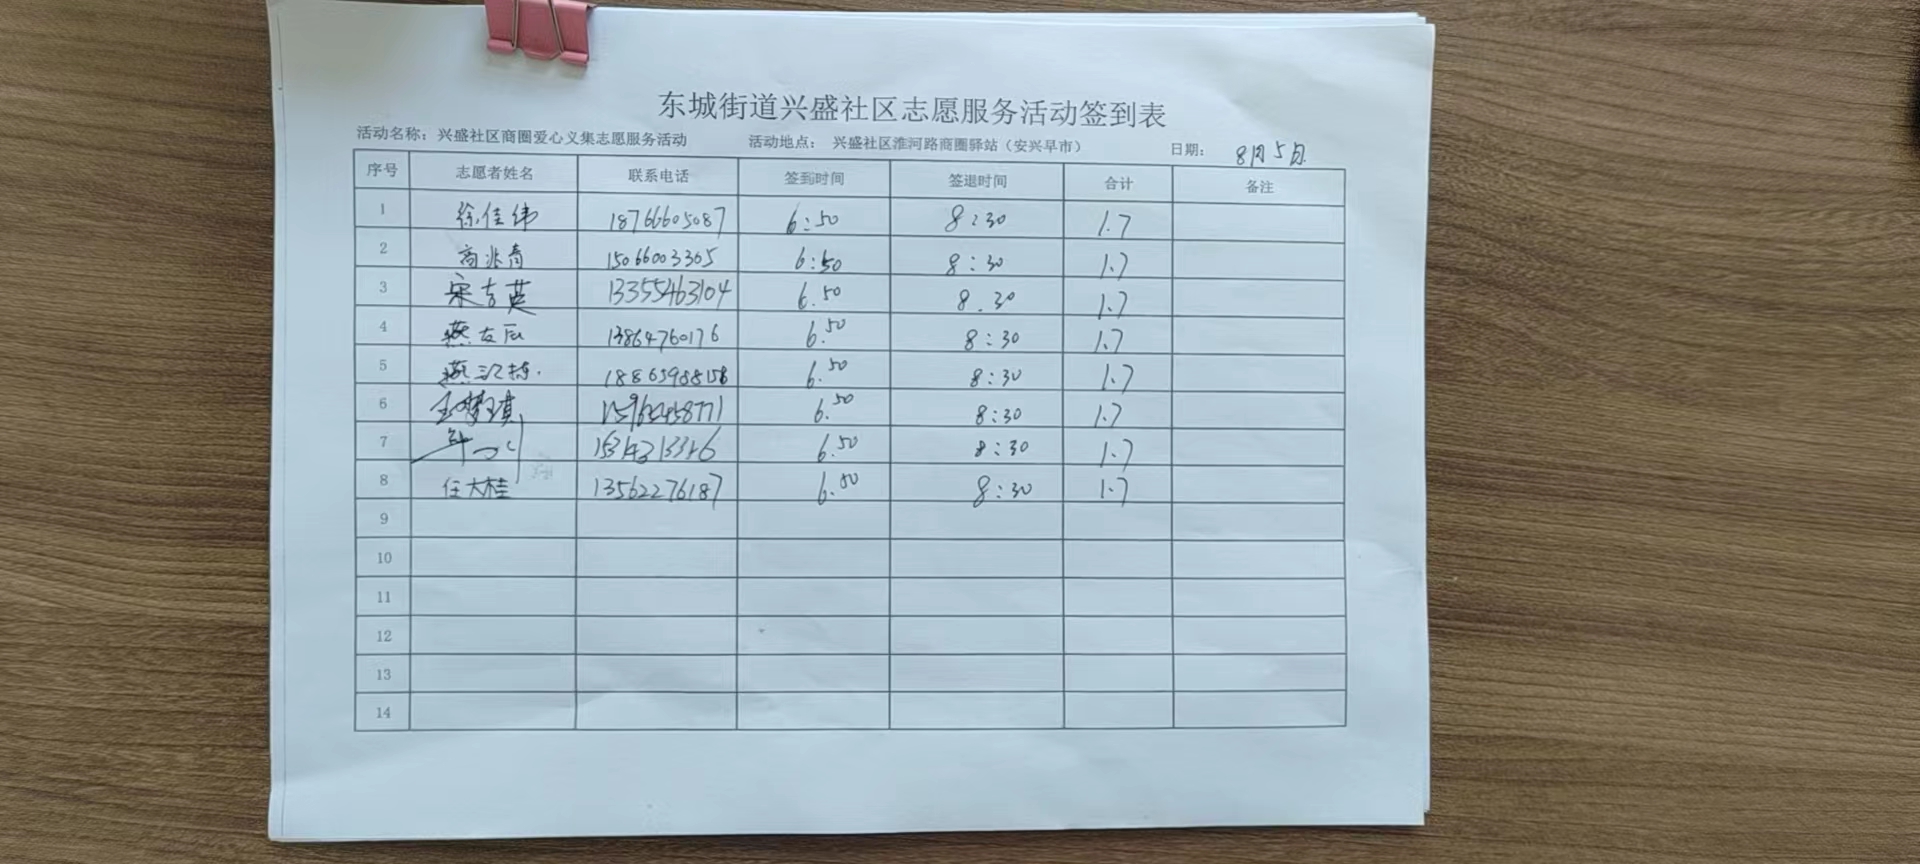 东城街道兴盛社区志愿服务活动签到表
活动名称：兴盛社区商圈爱心义集志愿服务活动 活动地点： 兴盛社区淮河路商圈驿站（安兴早市） 日期： 8月5日
序号 志愿者姓名 联系电话 签到时间 签退时间 合计 备注
1 徐佳纬 18766605087 6:50 8:30 1.7
2 高兆青 15066003305 6:50 8:30 1.7
3 宋吉英 13355463104 6.50 8.30 1.7
4 燕友辰 13864760176 6.50 8:30 1.7
5 燕江栋 6.50 8:30 1.7
6 王梦琪 6.50 8:30 1.7
7 6.50 8:30 1.7
8 任大桂 13562276187 6.50 8:30 1.7
9
10
11
12
13
14